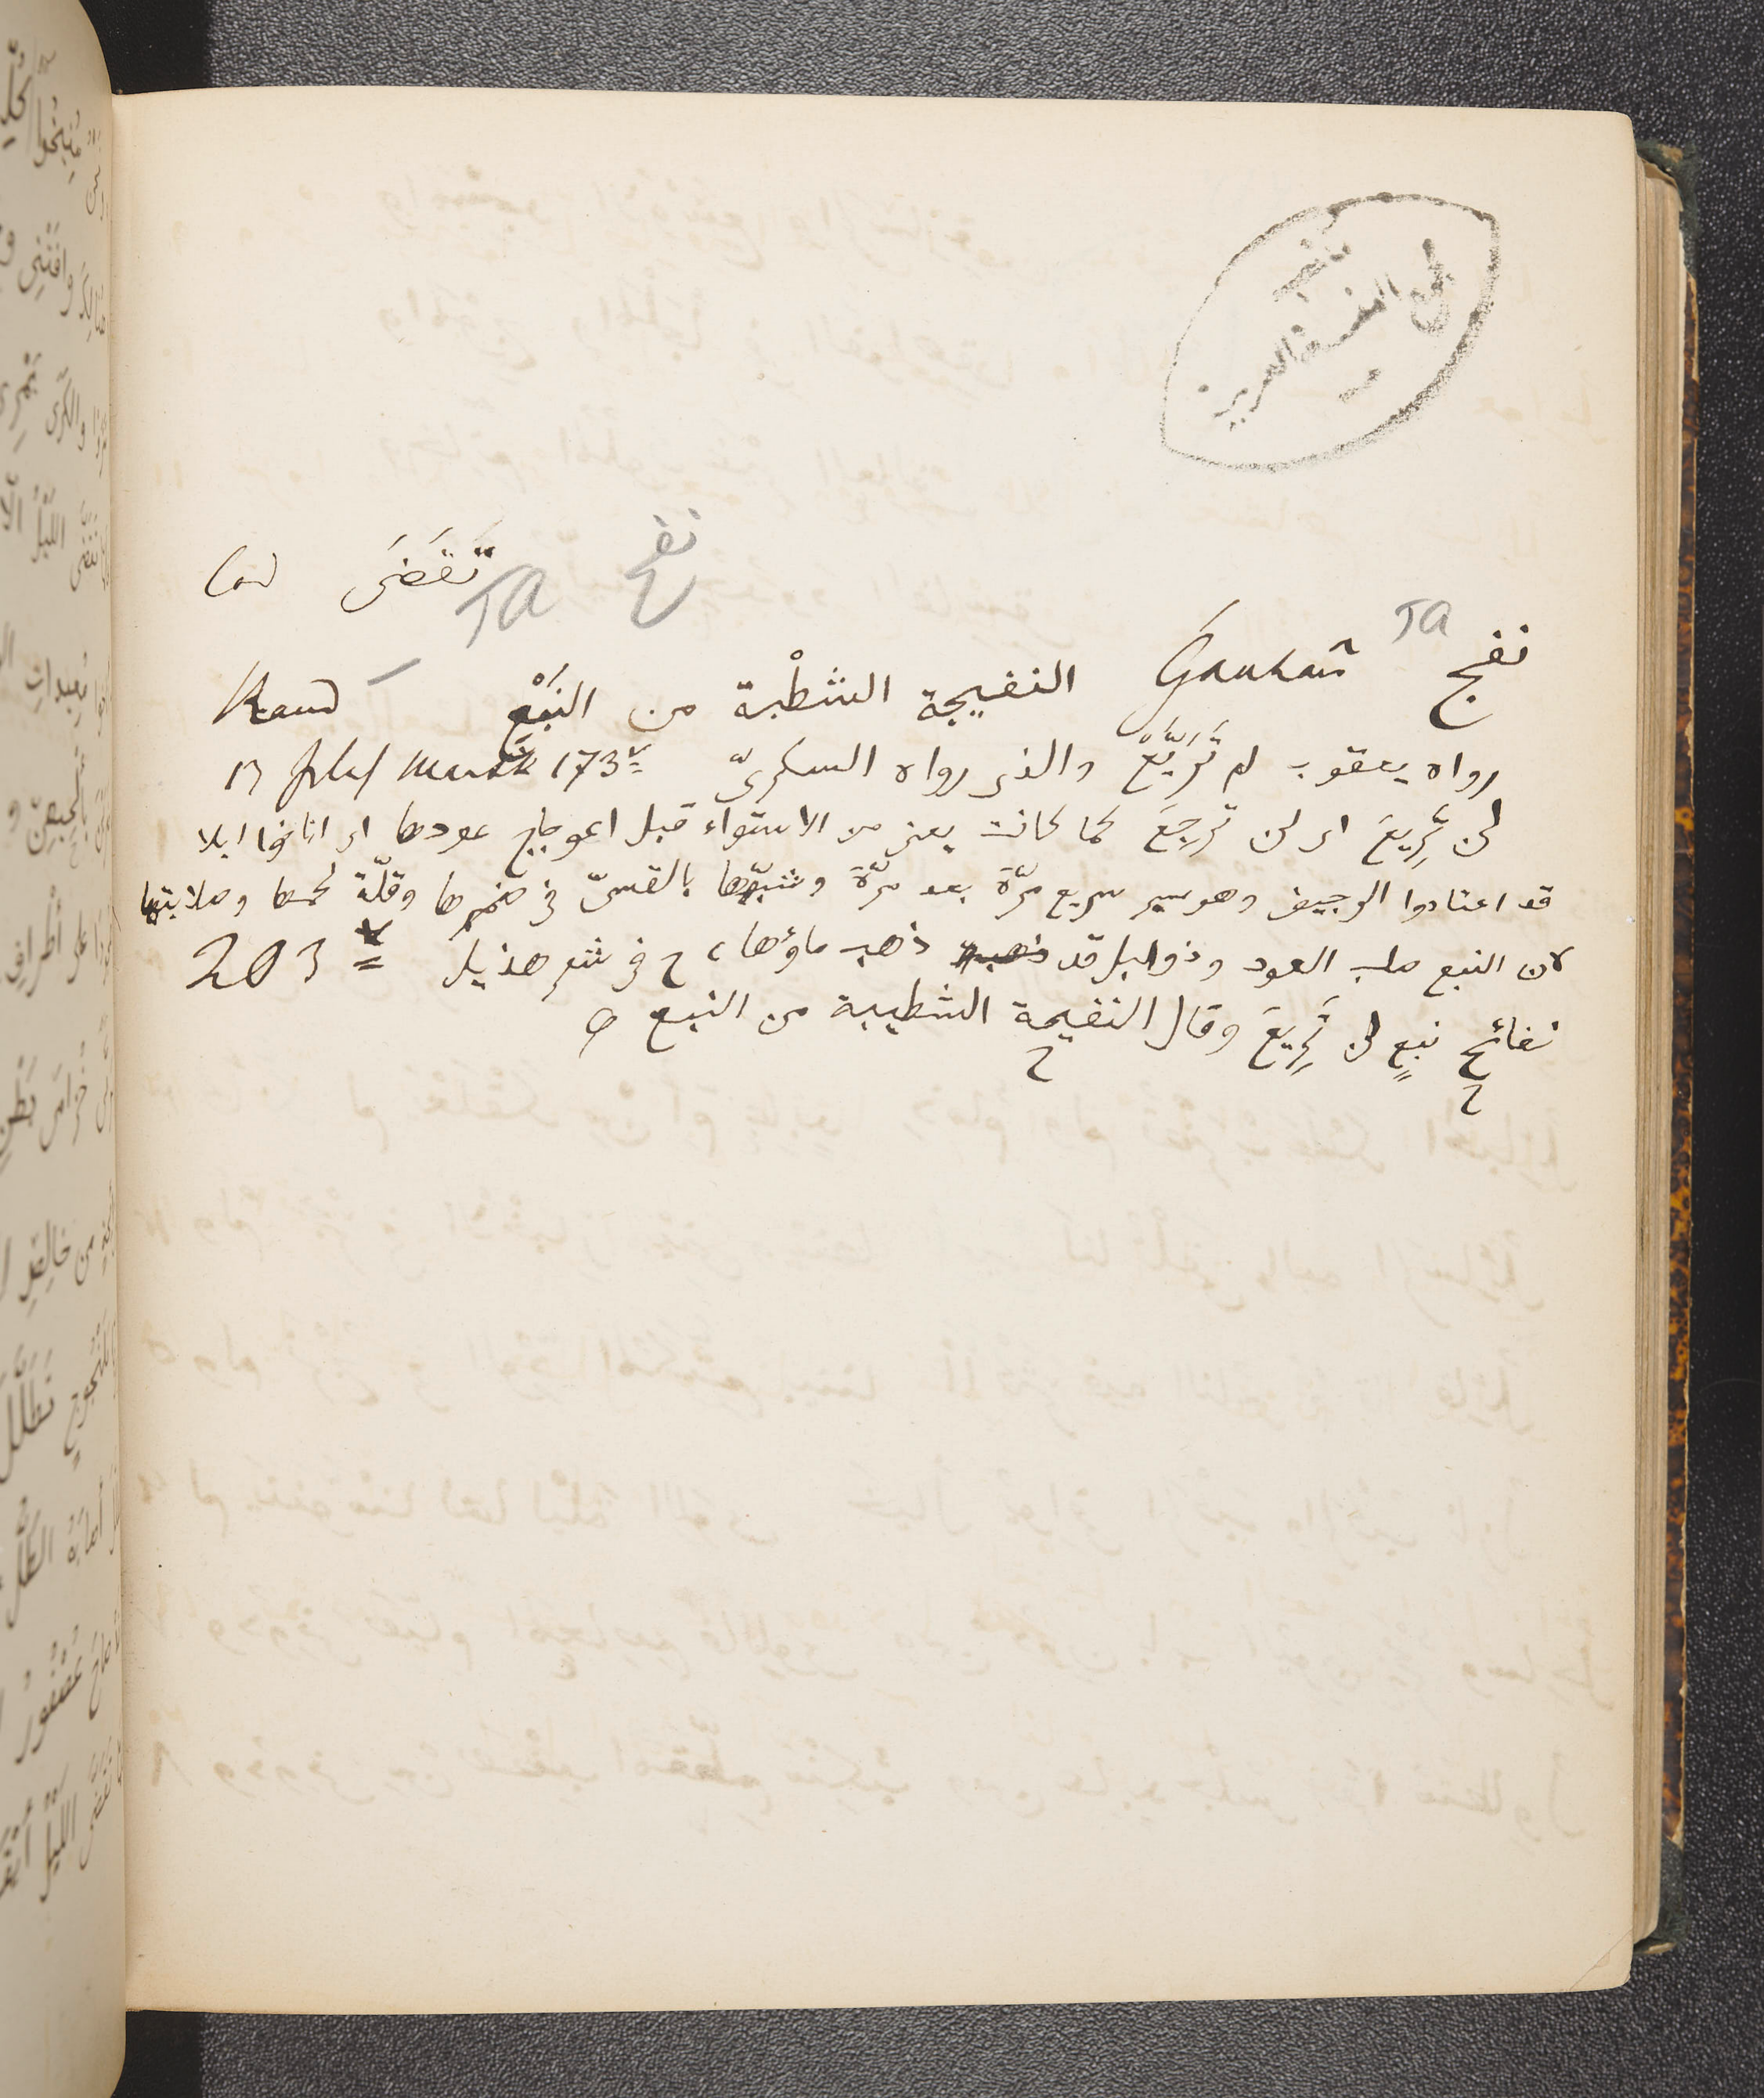 تَقَضَى Cod
نفج TA
نفج TA Gauhari النفيجة الشطْبة من النَبْع
رواه يعقوب لم تَرَيَّعْ والذى رواه السكرىّ 173
لن تَرِيعَ اى لن ترجِعَ كما كانت يعنى من الاستواء قبل اعوجاج عودها اى اناخوا ابلا
قد اعتادوا الوجيف وهو سير سريع مرّة بعد مرّة وشبّهها بالقسىّ فى ضمرها وقلّة لحمها وصلابتها
لان النبع صلب العود وذوابل قد ذهب ماؤها ، ح فى شعر هذيل 203
نفائح نبعٍ لن تَرِيعَ وقال النفيحة الشطيبة من النبع